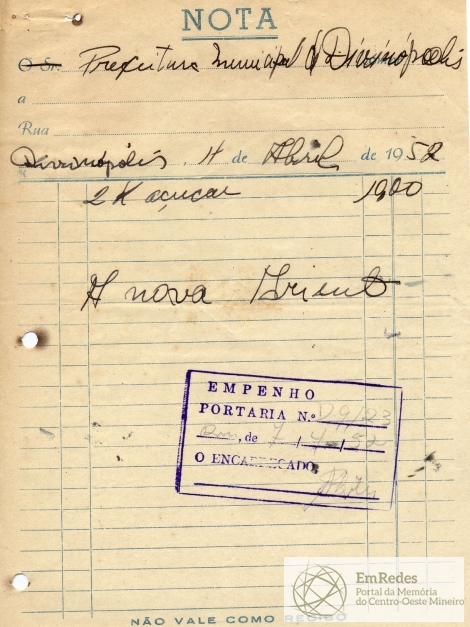 NOTA
O Sr. Prefeitura Municipal de Divinópolis
a
Rua
Divinópolis, 4 de Abril de 1952
2 K açucar 19,00
A nova Oriente
EMPENHO
PORTARIA N.º 29/23
, de 7/4/52
O ENCARREGADO
EmRedes
Portal da Memória
do Centro-Oeste Mineiro
NÃO VALE COMO RECIBO